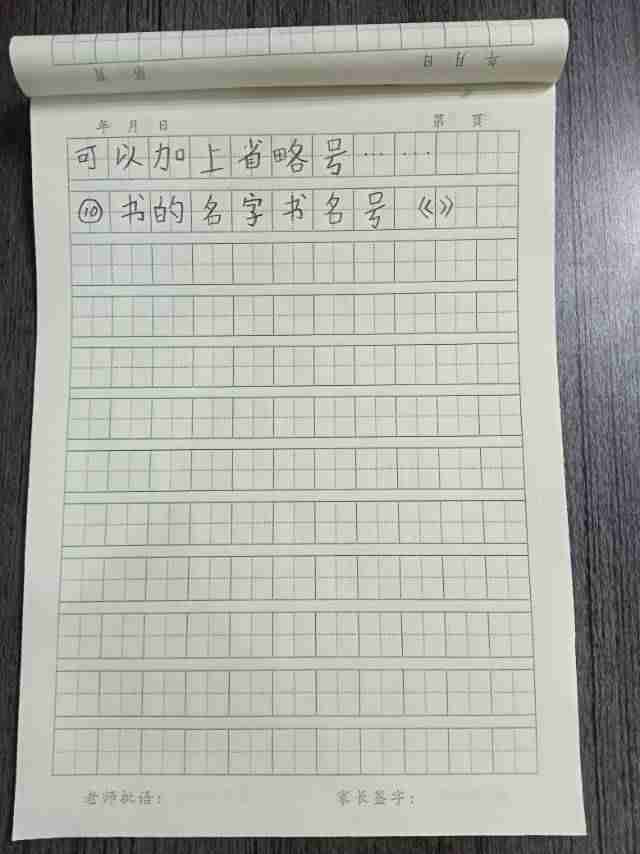 年 月 日
第 页
年 月 日 第 页
可以加上省略号……
⑩书的名字书名号《》
老师批语： 家长签字：